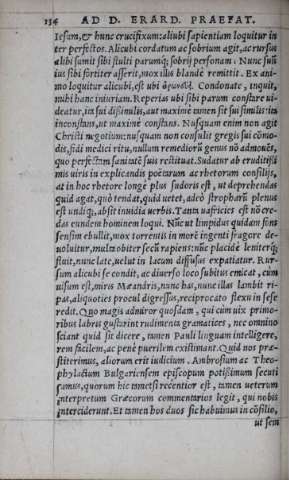 134 AD D. ERARD. PRAEFAT.
Iesum, & hunc crucifixum: alibi sapientiam loquitur in
ter perfectos. Alicubi cordatum ac sobrium agit, ac rursus
alibi sumit sibi stulti parumq; sobrij personam: Nunc suū
ius sibi fortiter asserit, mox illis blandè remittit. Ex ani-
mo loquitur alicubi, est ubi Condonate, inquit,
mihi hanc iniuriam. Reperias ubi sibi parum constare ui-
deatur, ita sui dissimilis, aut maximè tamen sit sui similis: ita
inconstans, ut maximè constans. Nusquam enim non agit
Christi negotium: nusquam non consulit gregis sui cōmo-
dis, fidi medici ritu, nullum remediorū genus nō admouēs,
quo perfectam sanitatē suis restituat. Sudatur ab eruditissi
mis uiris in explicandis poëtarum ac rhetorum consilijs,
at in hoc rhetore longè plus sudoris est, ut deprehendas
quid agat, quò tendat, quid uetet, adeò stropharū plenus
est undiq;, absit inuidia uerbis. Tanta uafricies est nō cre-
das eundem hominem loqui. Nūc ut limpidus quidam fons
sensim ebullit, mox torrentis in morē ingenti fragore de-
uoluitur, multa obiter secū rapiens: nūc placidè leniterq;
fluit, nunc late, uelut in lacum diffusus expatiatur. Rur-
sum alicubi se condit, ac diuerso loco subitus emicat, cùm
uisum est, miris Mæandris, nunc has, nunc illas lambit ri-
pas, aliquoties procul digressus, reciprocato flexu in sese
redit. Quo magis admiror quosdam, qui cùm uix primo-
ribus labris gustarint rudimenta gramatices, nec omnino
sciant quid sit dicere, tamen Pauli linguam intelligere,
rem facilem, ac penè puerilem existimant. Quid nos præ-
stiterimus, aliorum erit iudicium. Ambrosium ac Theo-
phylactum Bulgariensem episcopum potissimum secuti
sumus, quorum hic tametsi recentior est, tamen ueterum
interpretum Græcorum commentarios legit, qui nobis
interciderunt. Et tamen hos duos sic habuimus in cōsilio,
ut sem